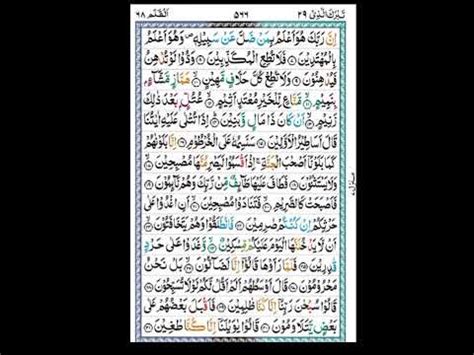 تَبٰرَكَ الَّذِىْ ٢٩ ٥٦٦ اَلْقَلَم ٦٨
اِنَّ رَبَّكَ هُوَ اَعْلَمُ بِمَنْ ضَلَّ عَنْ سَبِيْلِهٖ وَهُوَ اَعْلَمُ
بِالْمُهْتَدِيْنَ ۝٧ فَلَا تُطِعِ الْمُكَذِّبِيْنَ ۝٨ وَدُّوْا لَوْ تُدْهِنُ
فَيُدْهِنُوْنَ ۝٩ وَلَا تُطِعْ كُلَّ حَلَّافٍ مَّهِيْنٍ ۝١٠ هَمَّازٍ مَّشَّآءٍۢ
بِنَمِيْمٍ ۝١١ مَّنَّاعٍ لِّلْخَيْرِ مُعْتَدٍ اَثِيْمٍ ۝١٢ عُتُلٍّۭ بَعْدَ ذٰلِكَ
زَنِيْمٍ ۝١٣ اَنْ كَانَ ذَا مَالٍ وَّبَنِيْنَ ۝١٤ اِذَا تُتْلٰى عَلَيْهِ اٰيٰتُنَا
قَالَ اَسَاطِيْرُ الْاَوَّلِيْنَ ۝١٥ سَنَسِمُهٗ عَلَى الْخُرْطُوْمِ ۝١٦ اِنَّا بَلَوْنٰهُمْ
كَمَا بَلَوْنَآ اَصْحٰبَ الْجَنَّةِ اِذْ اَقْسَمُوْا لَيَصْرِمُنَّهَا مُصْبِحِيْنَ ۝١٧
وَلَا يَسْتَثْنُوْنَ ۝١٨ فَطَافَ عَلَيْهَا طَآئِفٌ مِّنْ رَّبِّكَ وَهُمْ نَآئِمُوْنَ ۝١٩
فَاَصْبَحَتْ كَالصَّرِيْمِ ۝٢٠ فَتَنَادَوْا مُصْبِحِيْنَ ۝٢١ اَنِ اغْدُوْا عَلٰى
حَرْثِكُمْ اِنْ كُنْتُمْ صٰرِمِيْنَ ۝٢٢ فَانْطَلَقُوْا وَهُمْ يَتَخَافَتُوْنَ ۝٢٣
اَنْ لَّا يَدْخُلَنَّهَا الْيَوْمَ عَلَيْكُمْ مِّسْكِيْنٌ ۝٢٤ وَّغَدَوْا عَلٰى حَرْدٍ
قٰدِرِيْنَ ۝٢٥ فَلَمَّا رَاَوْهَا قَالُوْٓا اِنَّا لَضَآلُّوْنَ ۝٢٦ بَلْ نَحْنُ
مَحْرُوْمُوْنَ ۝٢٧ قَالَ اَوْسَطُهُمْ اَلَمْ اَقُلْ لَّكُمْ لَوْلَا تُسَبِّحُوْنَ ۝٢٨
قَالُوْا سُبْحٰنَ رَبِّنَآ اِنَّا كُنَّا ظٰلِمِيْنَ ۝٢٩ فَاَقْبَلَ بَعْضُهُمْ عَلٰى
بَعْضٍ يَّتَلَاوَمُوْنَ ۝٣٠ قَالُوْا يٰوَيْلَنَآ اِنَّا كُنَّا طٰغِيْنَ ۝٣١
منزل ٧